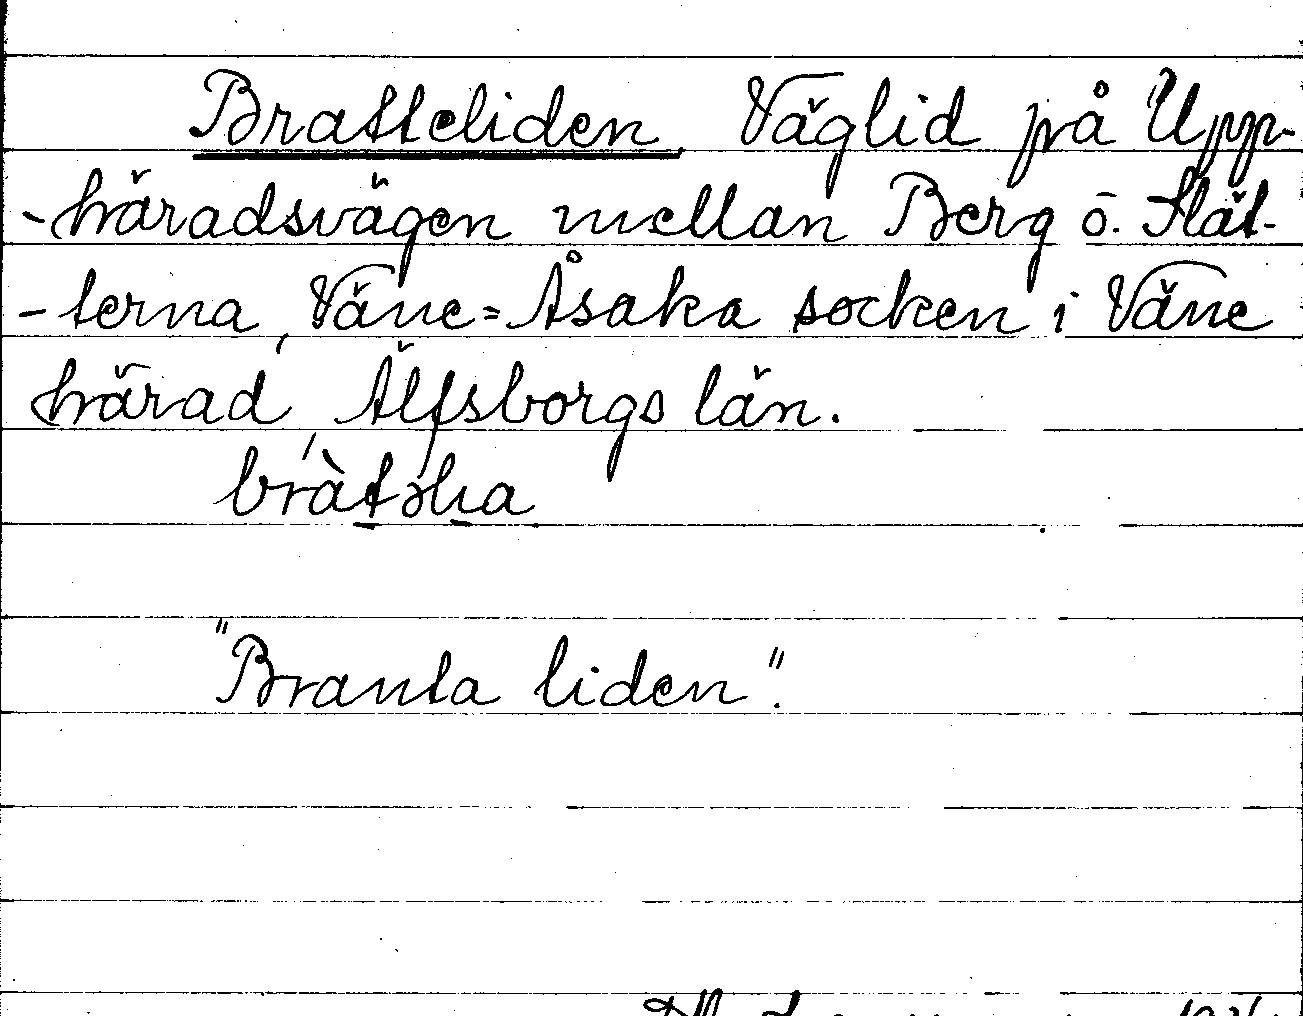 Bratteliden. Väglid på Upp-
-häradsvägen mellan Berg o. Slät-
-terna, Väne=Åsaka socken i Väne
härad, Älfsborgs län.
"Branta liden".